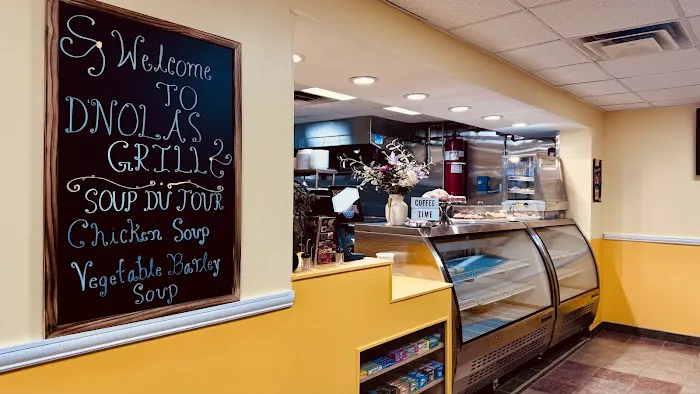 Welcome
TO
D'NOLAS
GRILL
SOUP DU JOUR
Chicken Soup
Vegetable Barley
Soup
COFFEE
TIME